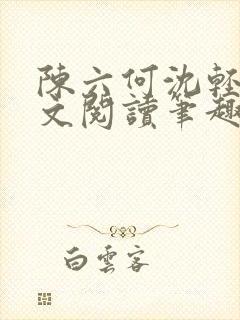 陳六何沈輕
文閱讀筆趣
白雲客